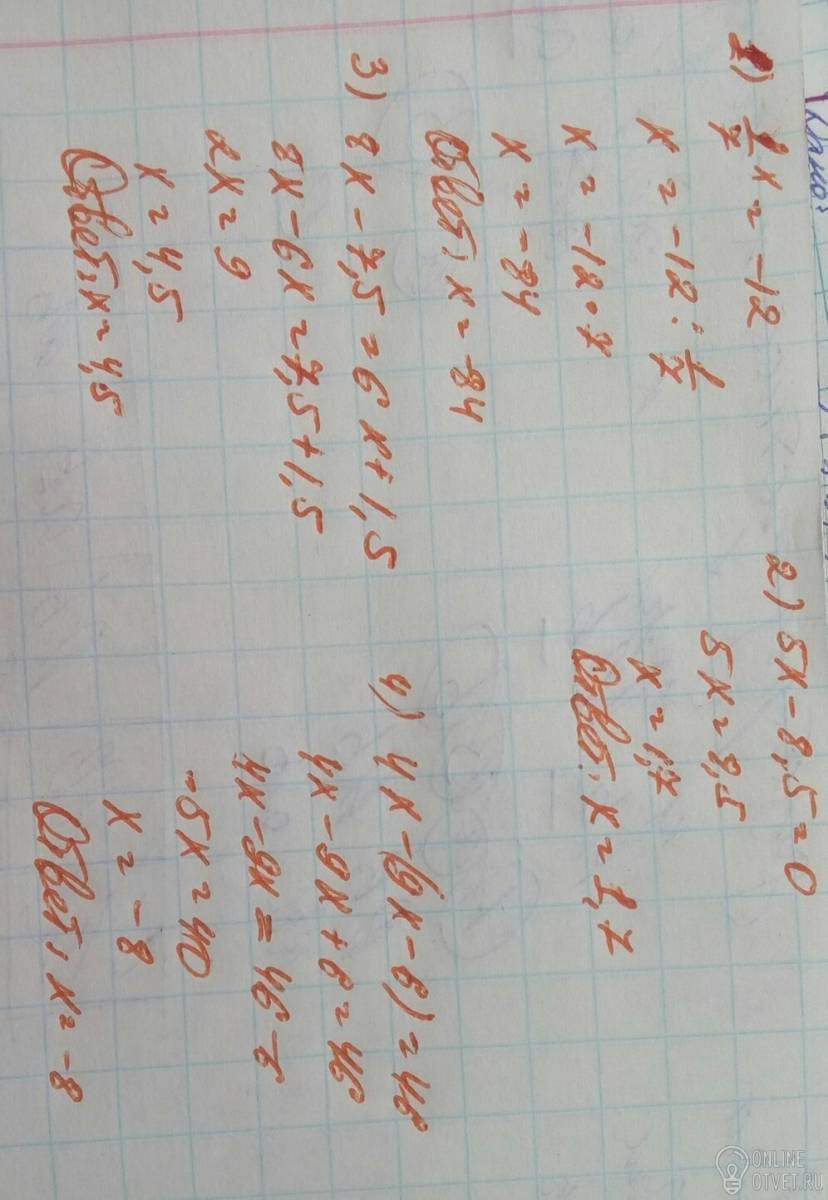 Дано:
1) 1/7 x = -12
x = -12 : 1/7
x = -12 • 7
x = -84
Ответ: x = -84
2) 5x - 8,5 = 0
5x = 8,5
x = 1,7
Ответ: x = 1,7
3) 8x - 7,5 = 6x + 1,5
8x - 6x = 7,5 + 1,5
2x = 9
x = 4,5
Ответ: x = 4,5
4) 4x - (9x - 6) = 46
4x - 9x + 6 = 46
4x - 9x = 46 - 6
-5x = 40
x = -8
Ответ: x = -8
ONLINE
OTVET.RU